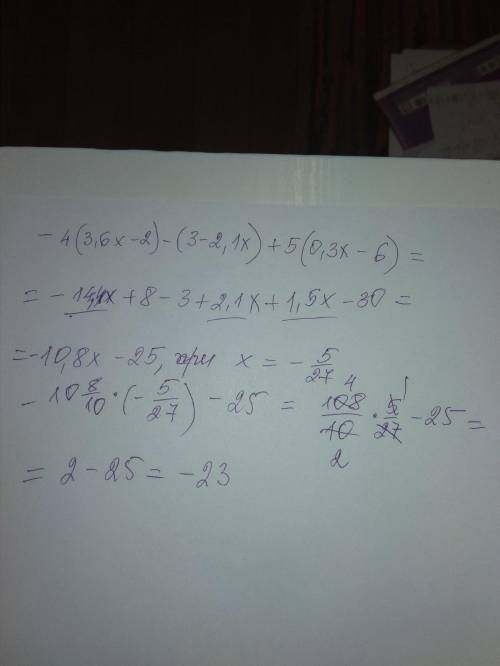 -4(3,6x-2)-(3-2,1x)+5(0,3x-6)=
=-14,4x+8-3+2,1x+1,5x-30=
=-10,8x-25, при x=-5/27
-10 8/10·(-5/27)-25=108/10·5/27-25=
4 1
2
=2-25=-23